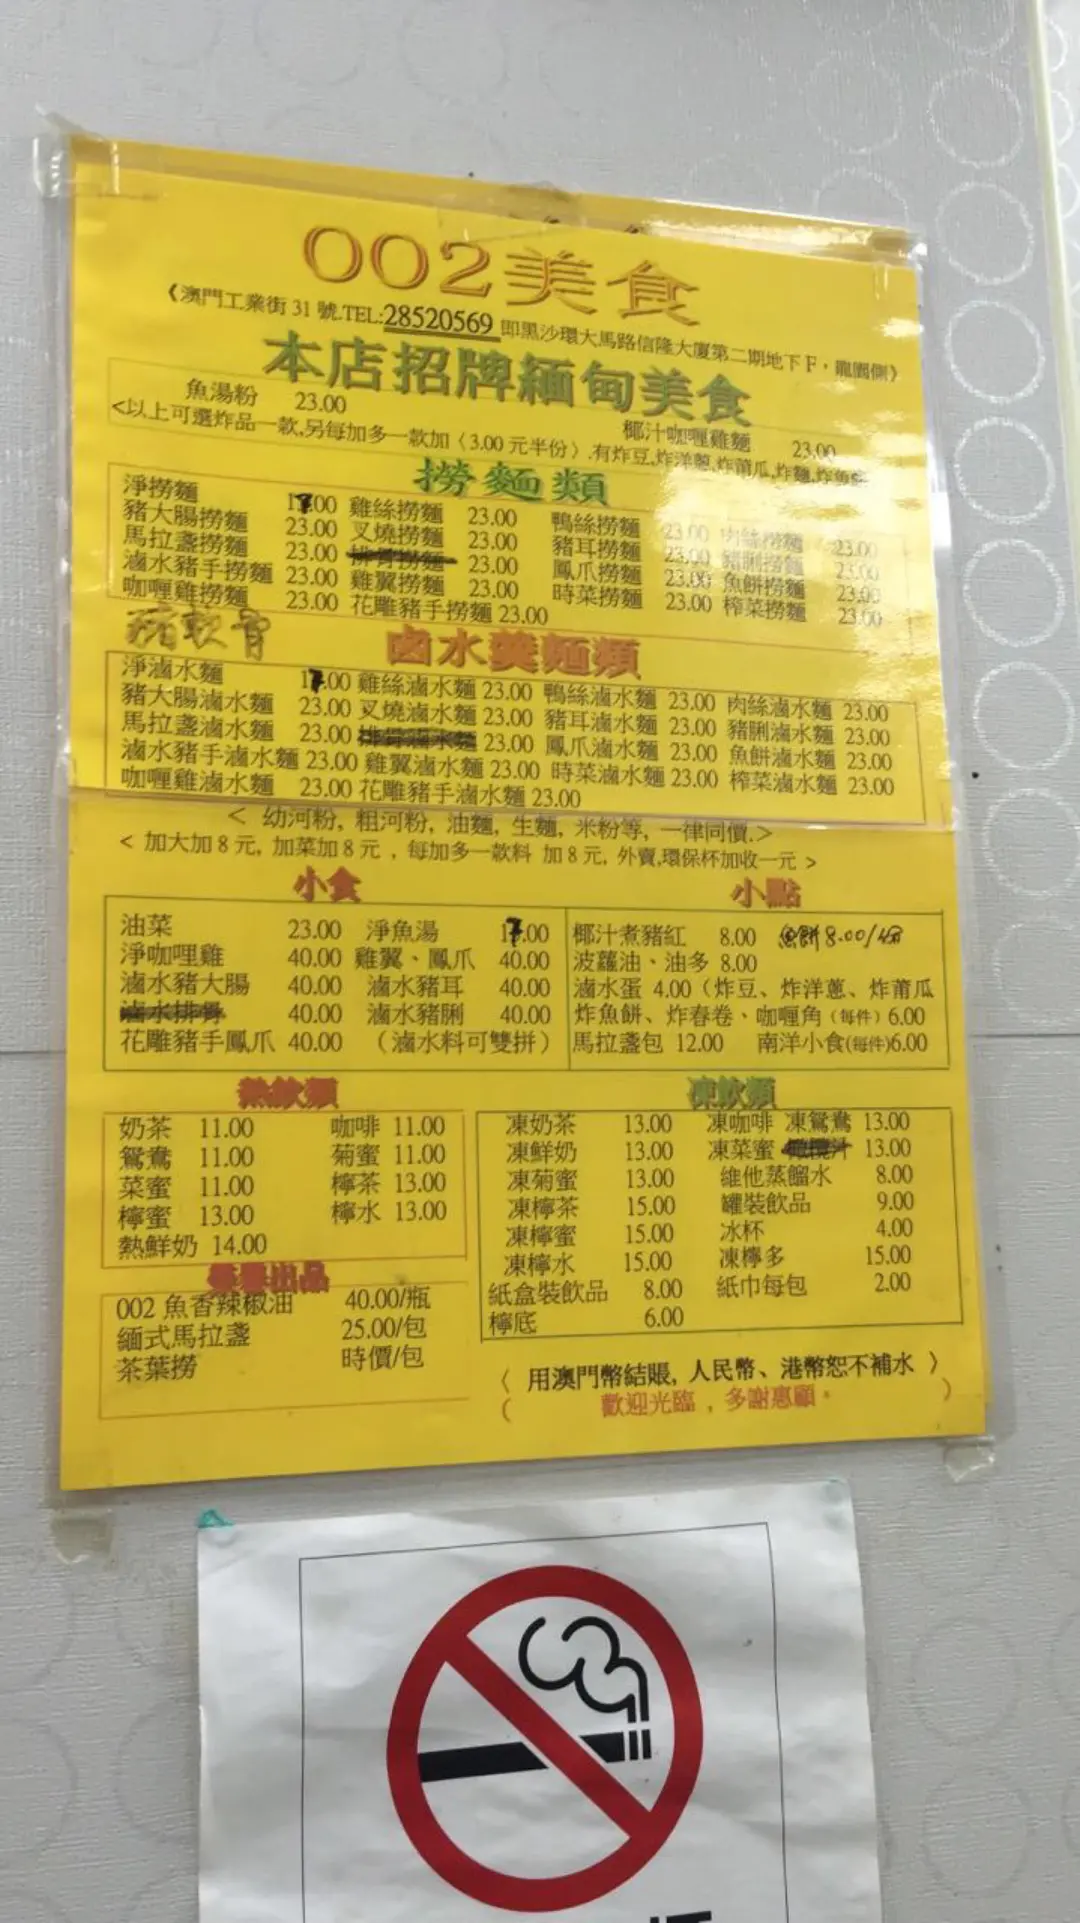 002美食
《澳門工業街 31 號.TEL:28520569 即黑沙環大馬路信隆大廈第二期地下 F，龍園側》
本店招牌緬甸美食
魚湯粉 23.00 椰汁咖喱雞麵 23.00
<以上可選炸品一款,另每加多一款加〈3.00 元半份〉.有炸豆,炸洋蔥,炸莆瓜,炸麵,炸魚餅
撈麵類
淨撈麵 17.00 雞絲撈麵 23.00 鴨絲撈麵 23.00 肉絲撈麵 23.00
豬大腸撈麵 23.00 叉燒撈麵 23.00 豬耳撈麵 23.00 豬脷撈麵 23.00
馬拉盞撈麵 23.00 排骨撈麵 23.00 鳳爪撈麵 23.00 魚餅撈麵 23.00
滷水豬手撈麵 23.00 雞翼撈麵 23.00 時菜撈麵 23.00 榨菜撈麵 23.00
咖喱雞撈麵 23.00 花雕豬手撈麵 23.00
軟骨
鹵水羹麵類
淨滷水麵 17.00 雞絲滷水麵 23.00 鴨絲滷水麵 23.00 肉絲滷水麵 23.00
豬大腸滷水麵 23.00 叉燒滷水麵 23.00 豬耳滷水麵 23.00 豬脷滷水麵 23.00
馬拉盞滷水麵 23.00 排骨滷水麵 23.00 鳳爪滷水麵 23.00 魚餅滷水麵 23.00
滷水豬手滷水麵 23.00 雞翼滷水麵 23.00 時菜滷水麵 23.00 榨菜滷水麵 23.00
咖喱雞滷水麵 23.00 花雕豬手滷水麵 23.00
< 幼河粉, 粗河粉, 油麵, 生麵, 米粉等, 一律同價.>
< 加大加 8 元, 加菜加 8 元 , 每加多一款料 加 8 元, 外賣,環保杯加收一元 >
小食
油菜 23.00 淨魚湯 17.00
淨咖哩雞 40.00 雞翼、鳳爪 40.00
滷水豬大腸 40.00 滷水豬耳 40.00
滷水排骨 40.00 滷水豬脷 40.00
花雕豬手鳳爪 40.00 （滷水料可雙拼）
小點
椰汁煮豬紅 8.00 魚餅 8.00/份
波蘿油、油多 8.00
滷水蛋 4.00（炸豆、炸洋蔥、炸莆瓜
炸魚餅、炸春卷、咖喱角（每件）6.00
馬拉盞包 12.00 南洋小食(每件)6.00
熱飲類
奶茶 11.00 咖啡 11.00
鴛鴦 11.00 菊蜜 11.00
菜蜜 11.00 檸茶 13.00
檸蜜 13.00 檸水 13.00
熱鮮奶 14.00
凍飲類
凍奶茶 13.00 凍咖啡 凍鴛鴦 13.00
凍鮮奶 13.00 凍菜蜜 橄欖汁 13.00
凍菊蜜 13.00 維他蒸餾水 8.00
凍檸茶 15.00 罐裝飲品 9.00
凍檸蜜 15.00 冰杯 4.00
凍檸水 15.00 凍檸多 15.00
紙盒裝飲品 8.00 紙巾每包 2.00
檸底 6.00
出品
002 魚香辣椒油 40.00/瓶
緬式馬拉盞 25.00/包
茶葉撈 時價/包
〈 用澳門幣結賬, 人民幣、港幣恕不補水 〉
（ 歡迎光臨 , 多謝惠顧。 ）